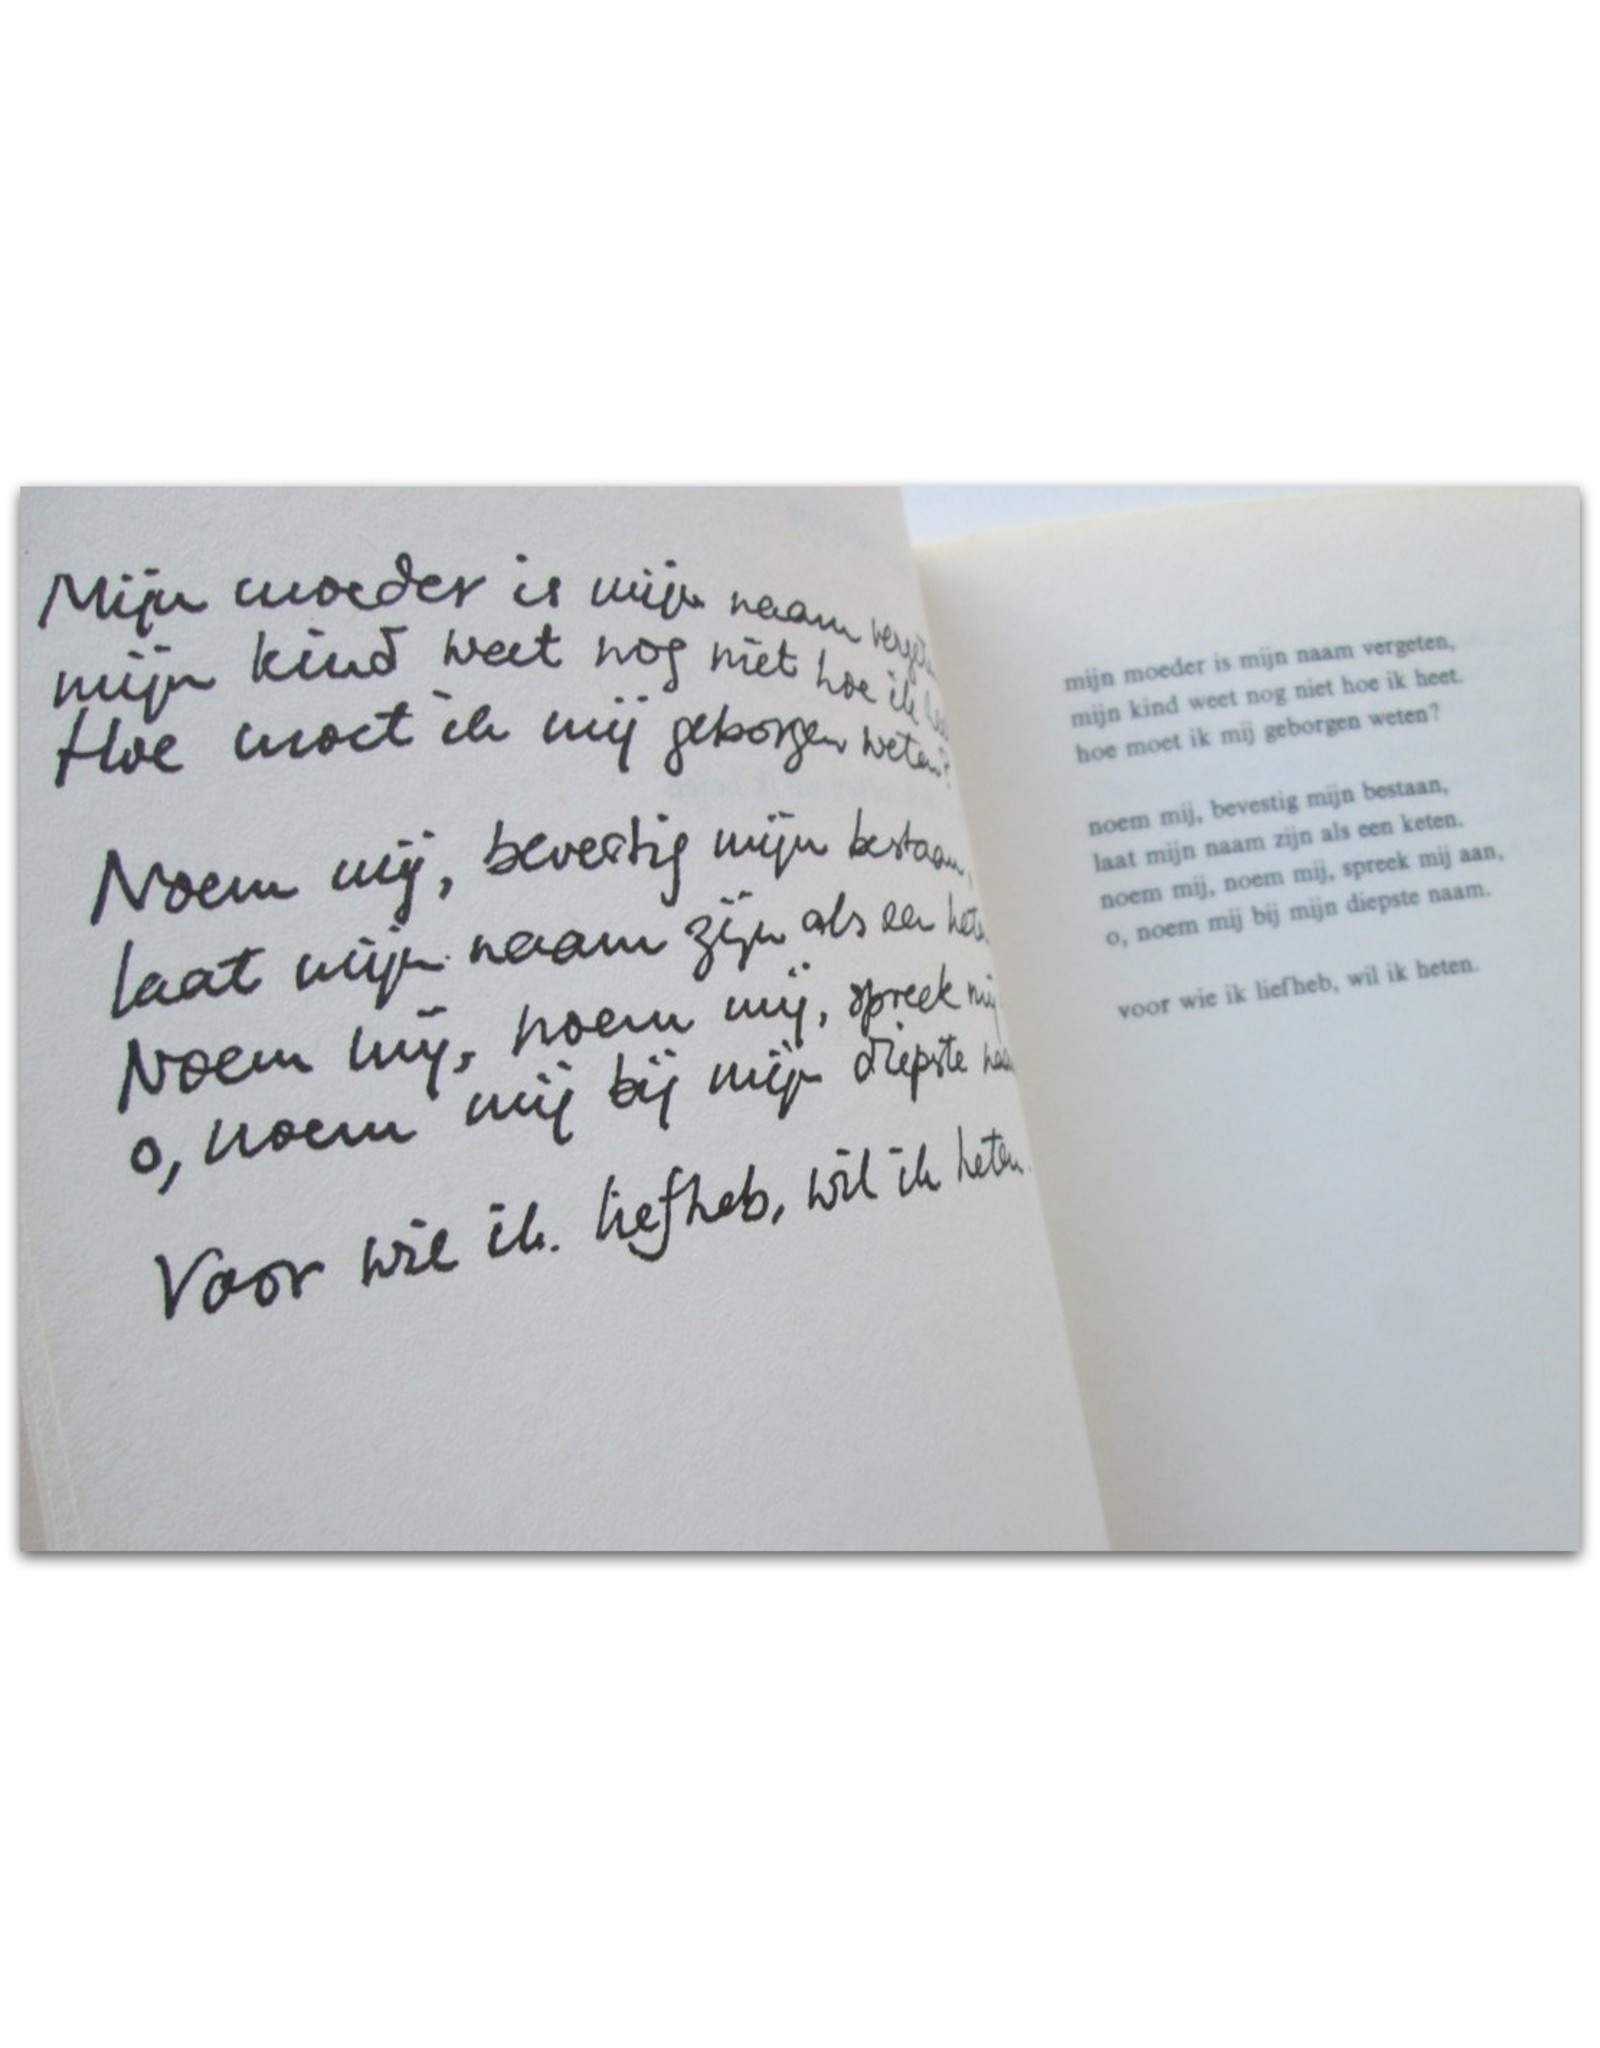 Mijn moeder is mijn naam
mijn kind weet nog niet hoe ik
Hoe moet ik mij geborgen weten?
Noem mij, bevestig mijn bestaan,
laat mijn naam zijn als een
Noem mij, noem mij, spreek mij
o, noem mij bij mijn diepste
Voor wie ik liefheb, wil ik heten.
mijn moeder is mijn naam vergeten,
mijn kind weet nog niet hoe ik heet.
hoe moet ik mij geborgen weten?
noem mij, bevestig mijn bestaan,
laat mijn naam zijn als een keten.
noem mij, noem mij, spreek mij aan,
o, noem mij bij mijn diepste naam.
voor wie ik liefheb, wil ik heten.